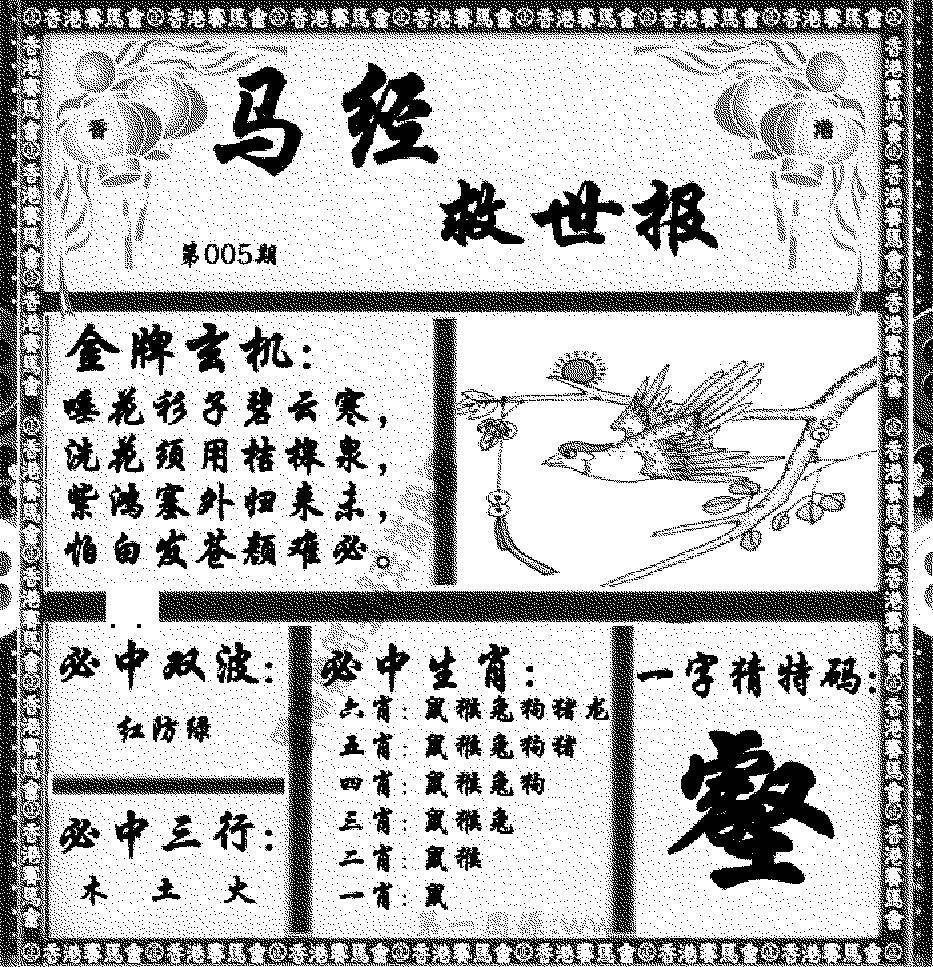 香港賽馬會香港賽馬會香港賽馬會香港賽馬會香港賽馬會香港賽馬會香港賽馬會
香
港
马经
救世报
第005期
金牌玄机:
唾花彩子碧云寒,
洗花须用桔槔泉,
紫鸿塞外归来未,
怕白发苍颜难必。
必中双波:
红防绿
必中三行:
木 土 火
必中生肖:
六肖:鼠猴兔狗猪龙
五肖:鼠猴兔狗猪
四肖:鼠猴兔狗
三肖:鼠猴兔
二肖:鼠猴
一肖:鼠
一字猜特码:
壑
香港賽馬會香港賽馬會香港賽馬會香港賽馬會香港賽馬會香港賽馬會香港賽馬會